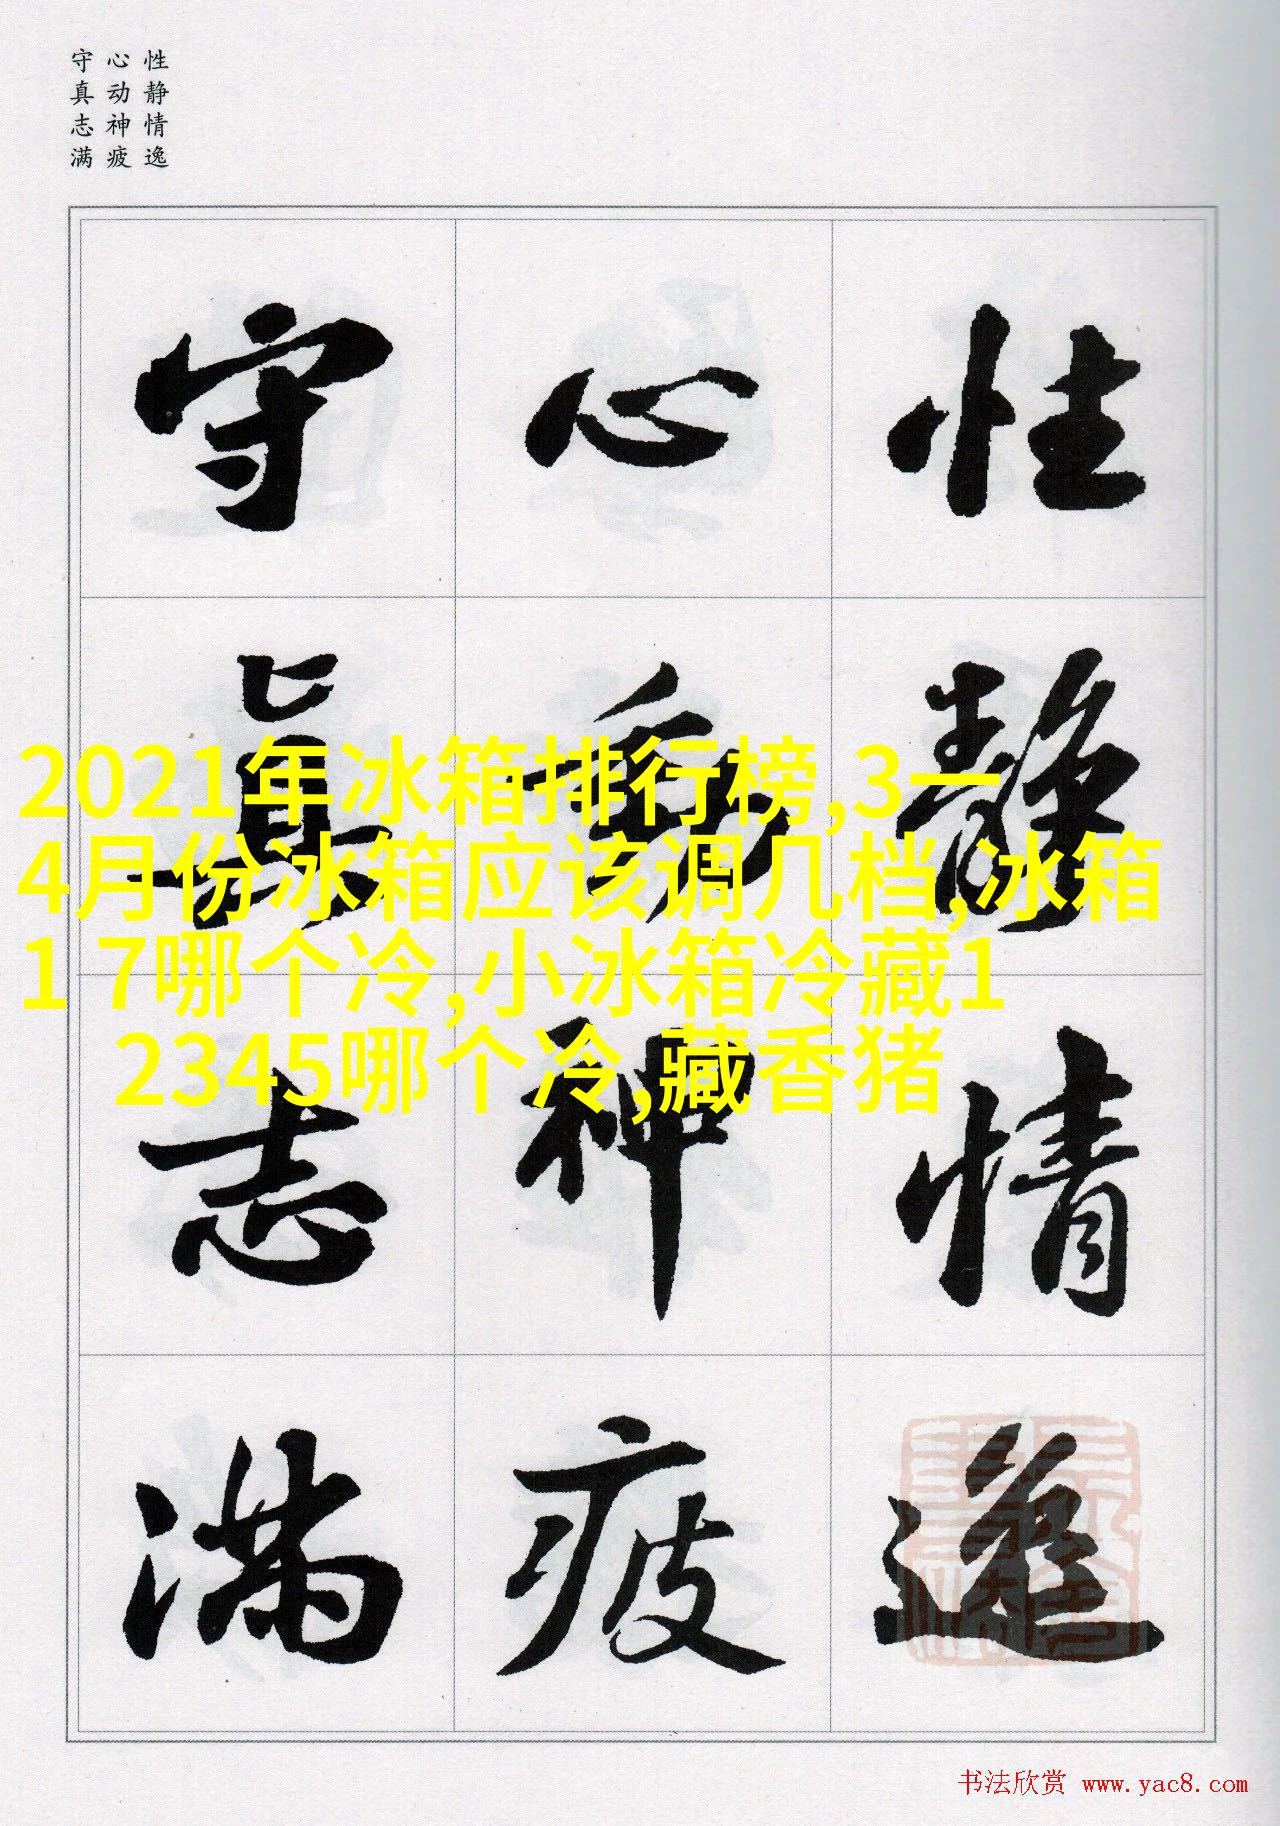 性静情逸
心动神疲
守真志满
性静情逸
心動神疲
守真志满
2021年冰箱排行榜,3一
4月份冰箱应该调几档,冰箱
1 7哪个冷,小冰箱冷藏1
2345哪个冷,藏香猪
书法欣赏 www.yac8.com